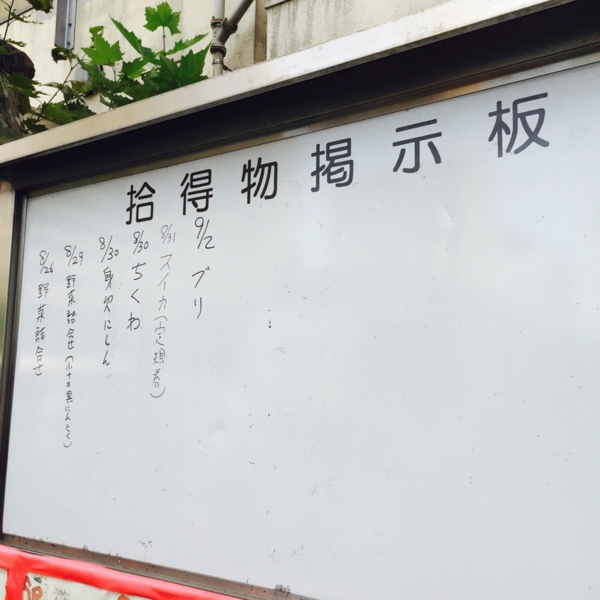 拾得物掲示板
9/2 ブリ
8/31 スイカ(定期券)
8/30 ちくわ
8/30 身欠にしん
8/29 野菜詰合せ(小ナス黒にんにく)
8/26 野菜詰合せ